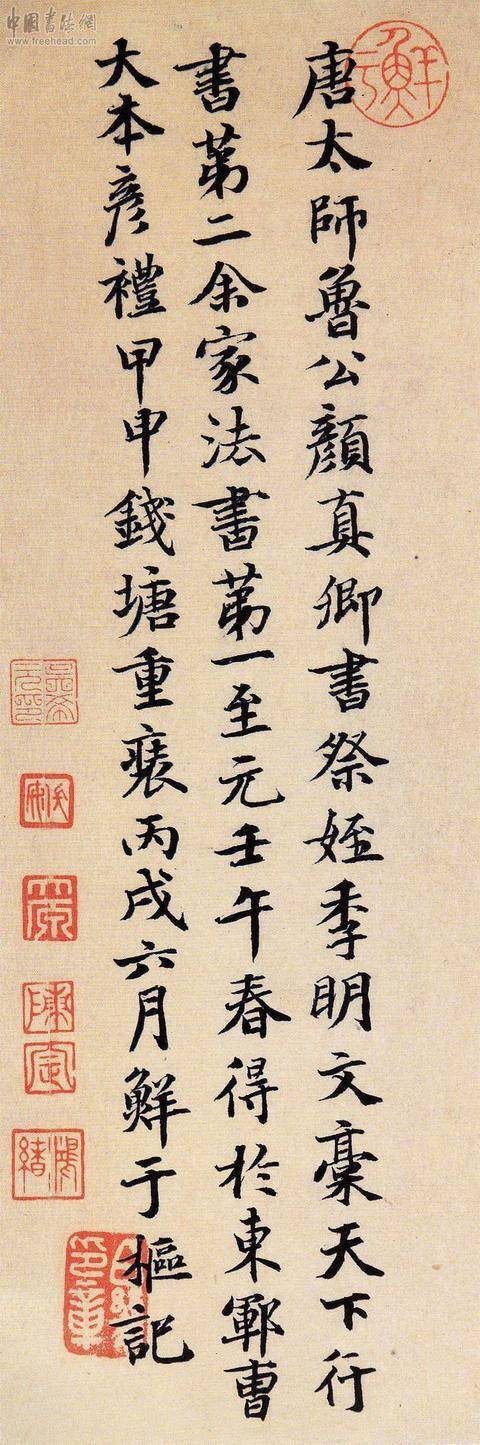 中国书法网
www.freehead.com
唐太師魯公顏真卿書祭姪季明文稾天下行
書第二余家法書第一至元壬午春得於東鄆曹
大本彥禮甲申錢塘重裝丙戌六月鮮于樞記